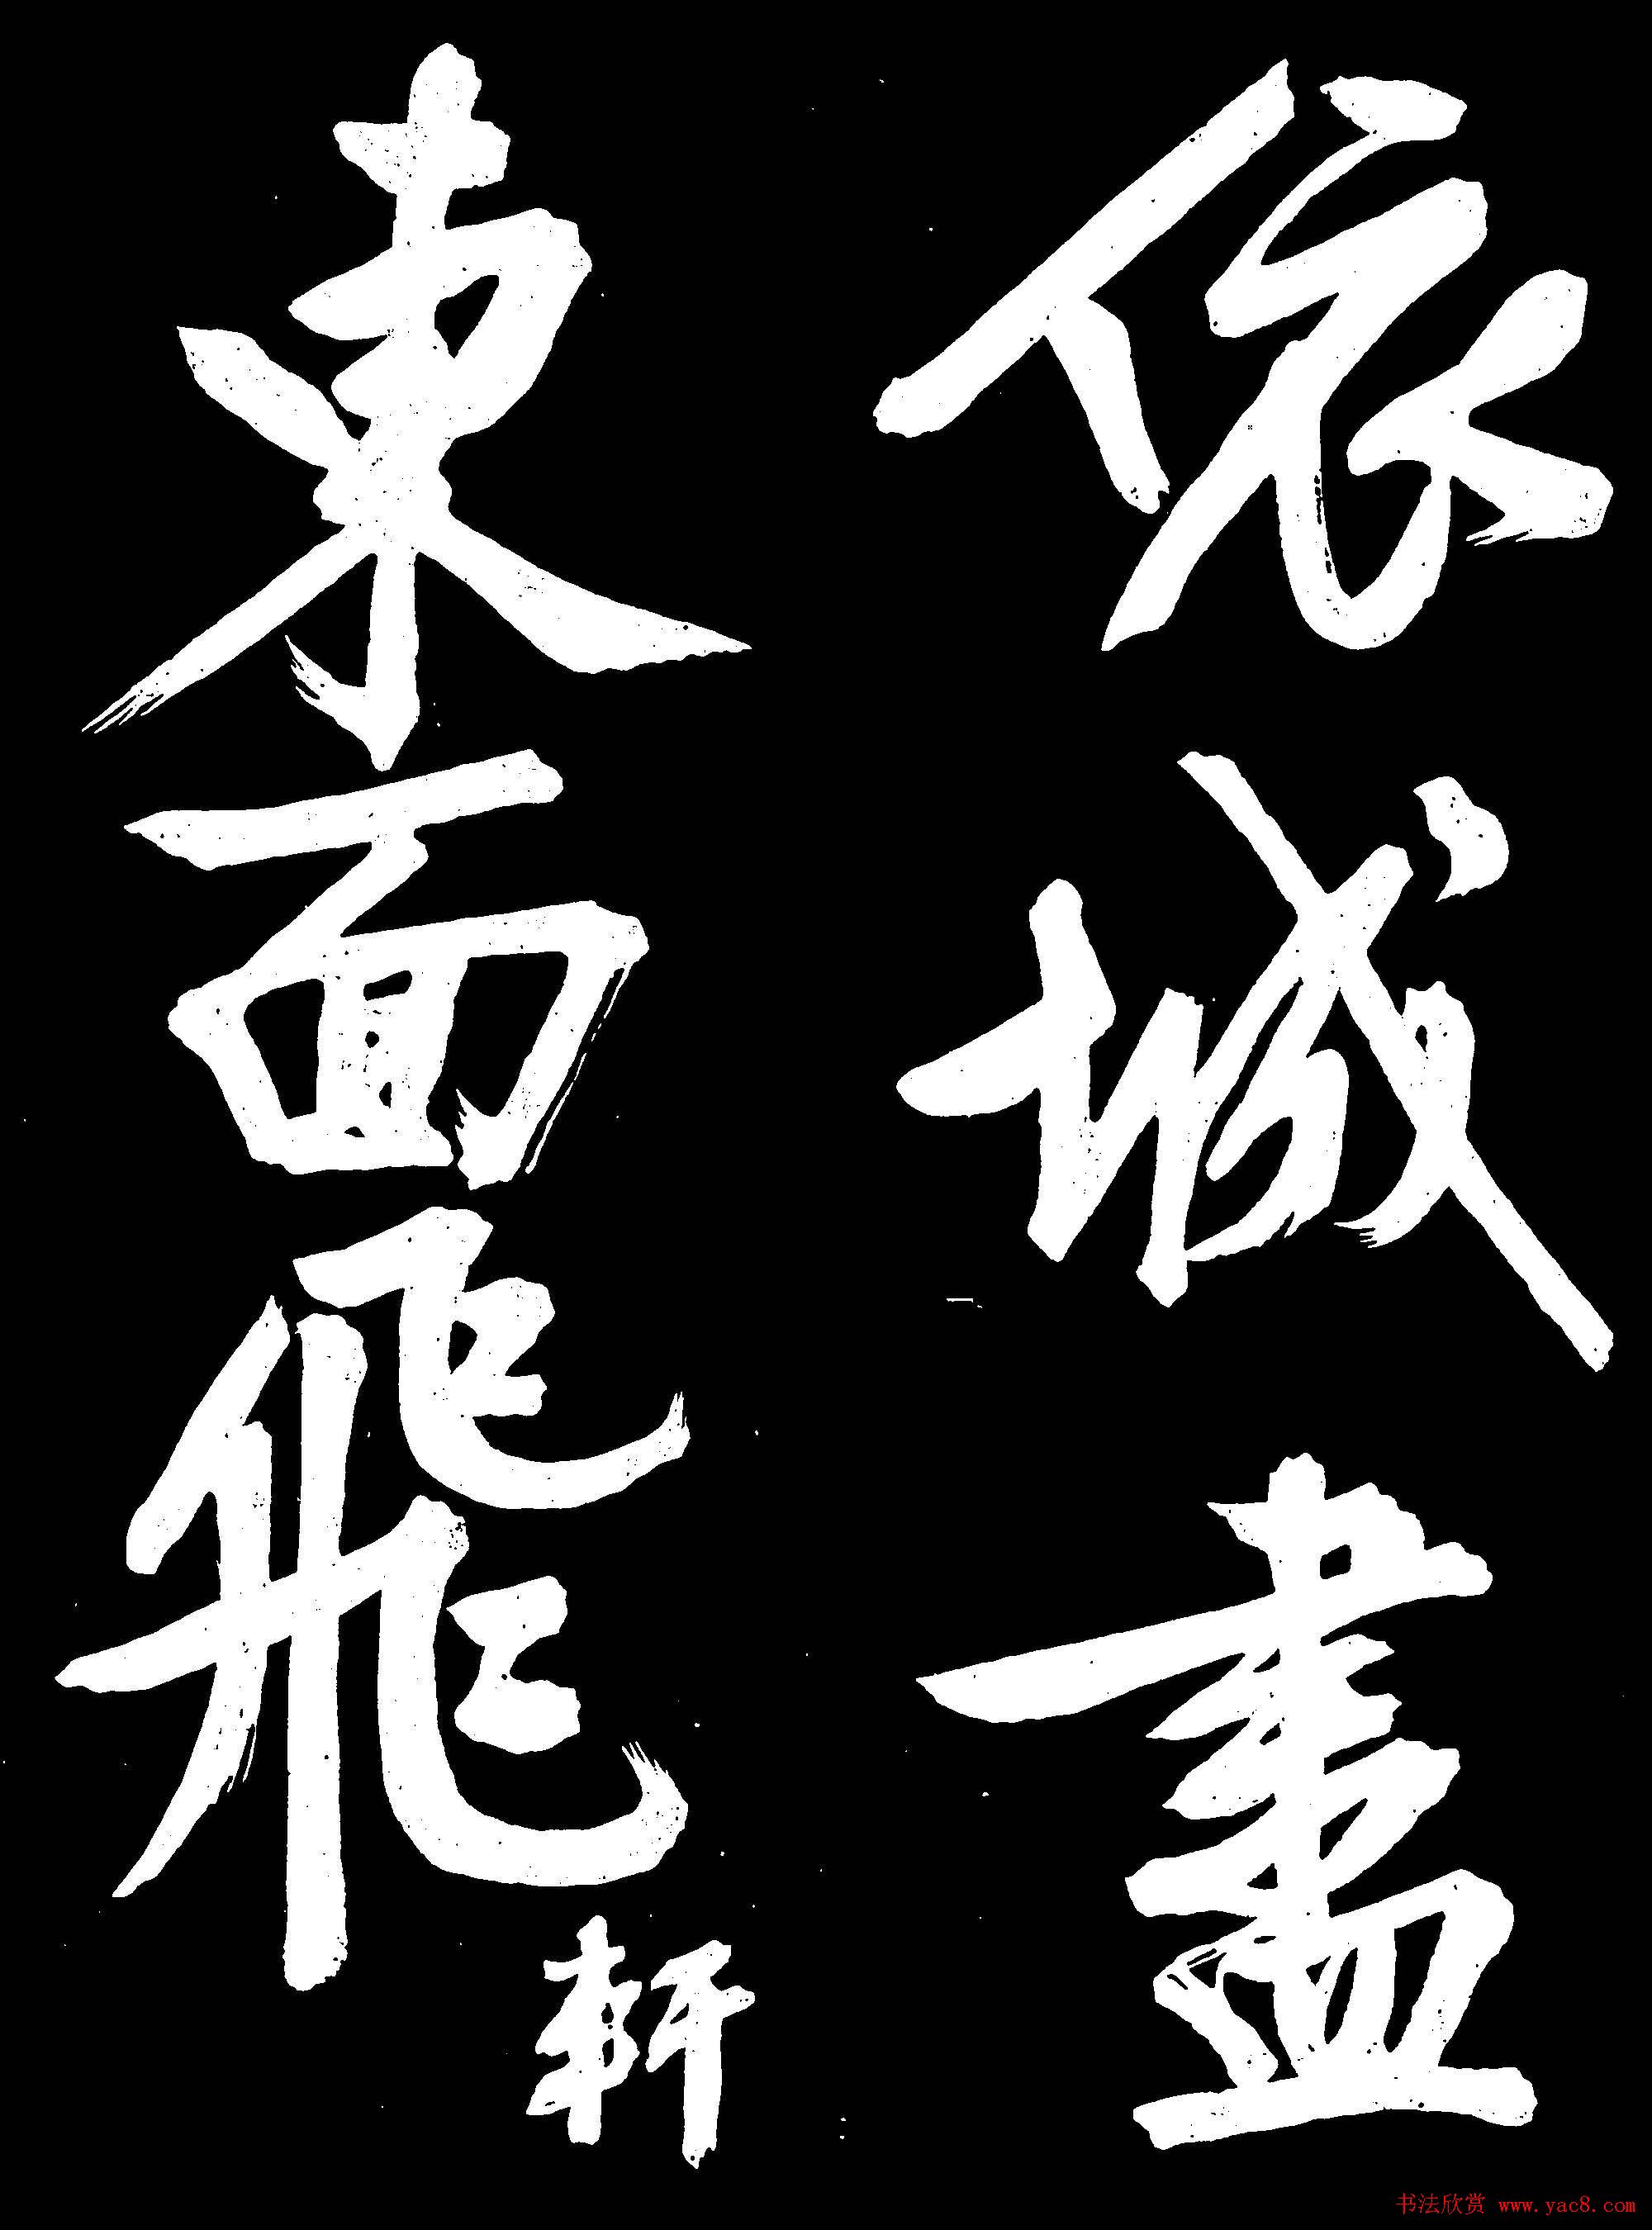 依城盡
東面飛
軒
书法欣赏 www.yac8.com